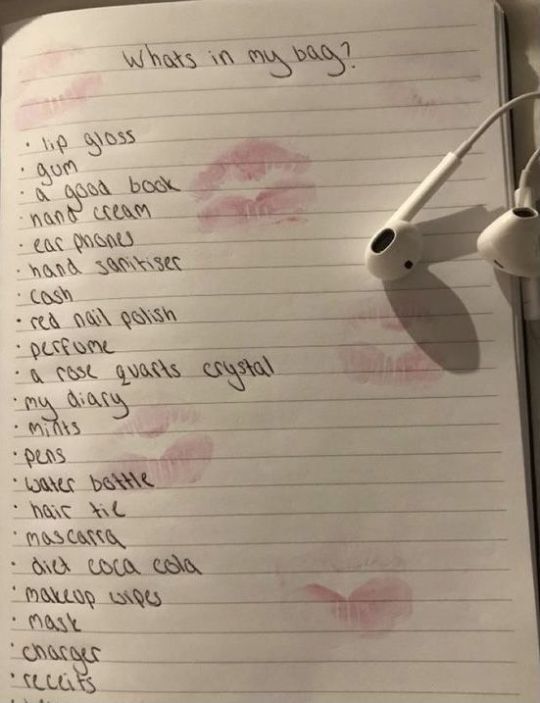 Whats in my bag?
· lip gloss
· gum
· a good book
· hand cream
· ear phones
· hand sanitiser
· cash
· red nail polish
· perfume
· a rose quarts crystal
· my diary
· mints
· pens
· water bottle
· hair tie
· mascarra
· diet coca cola
· makeup wipes
· mask
· charger
· receits